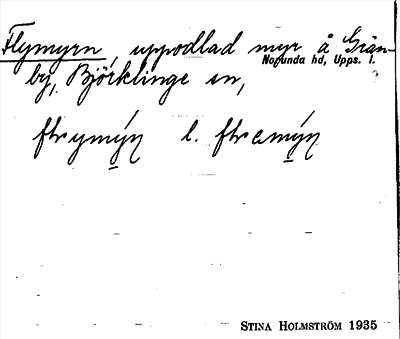 Flymyrn, uppodlad myr å Grän-
by, Björklinge sn,
Norunda hd, Upps. l.
l.
STINA HOLMSTRÖM 1935